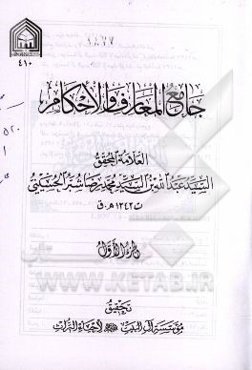 ٤١٠
جامع المعارف والأحكام
العلامة المحقق
السيد عبد الله بن السيد محمد رضا شبر الحسيني
ت ١٢٤٢ هـ. ق
الجزء الأول
تحقيق
مؤسسة آل البيت لإحياء التراث
WWW.KETAB.IR